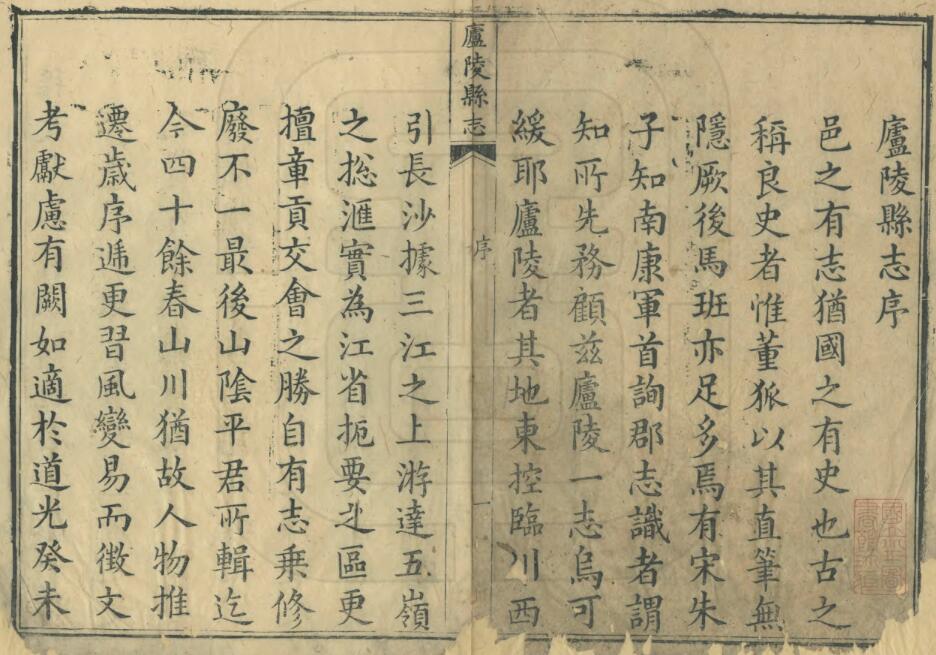 廬陵縣志序
邑之有志猶國之有史也古之
稱良史者惟董狐以其直筆無
隱厥後馬班亦足多焉有宋朱
子知南康軍首詢郡志識者謂
知所先務顧兹廬陵一志烏可
緩耶廬陵者其地東控臨川西
廬陵縣志
序
一
引長沙據三江之上游達五嶺
之揔滙實為江省扼要之區更
擅章貢交會之勝自有志乗修
廢不一最後山隂平君所輯迄
今四十餘春山川猶故人物推
遷歲序遞更習風變易而徴文
考獻慮有闕如適於道光癸未